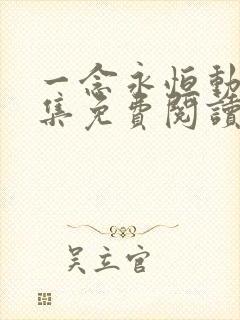 一念永恒動
集免費閱讀
吴立官